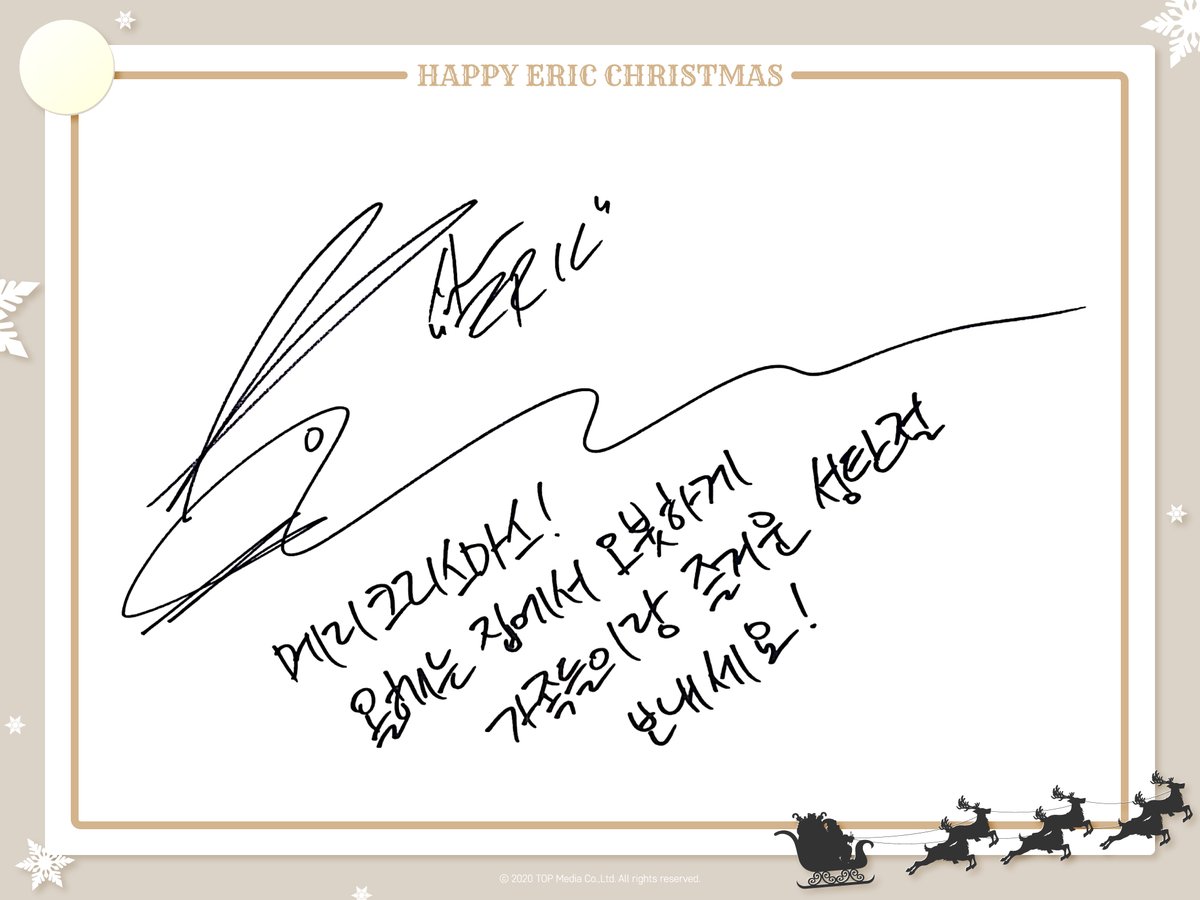 HAPPY ERIC CHRISTMAS
ERIC"
메리크리스마스!
올해는 집에서 오붓하게
가족들이랑 즐거운 성탄절
보내세요!
© 2020 TOP Media Co.,Ltd. All rights reserved.